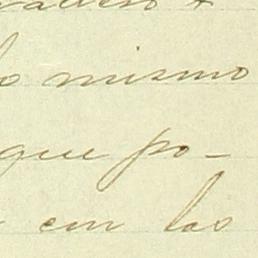 lo mismo
que po-
con los